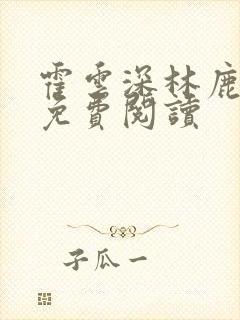 霍雲深林鹿
免費閱讀
子瓜一